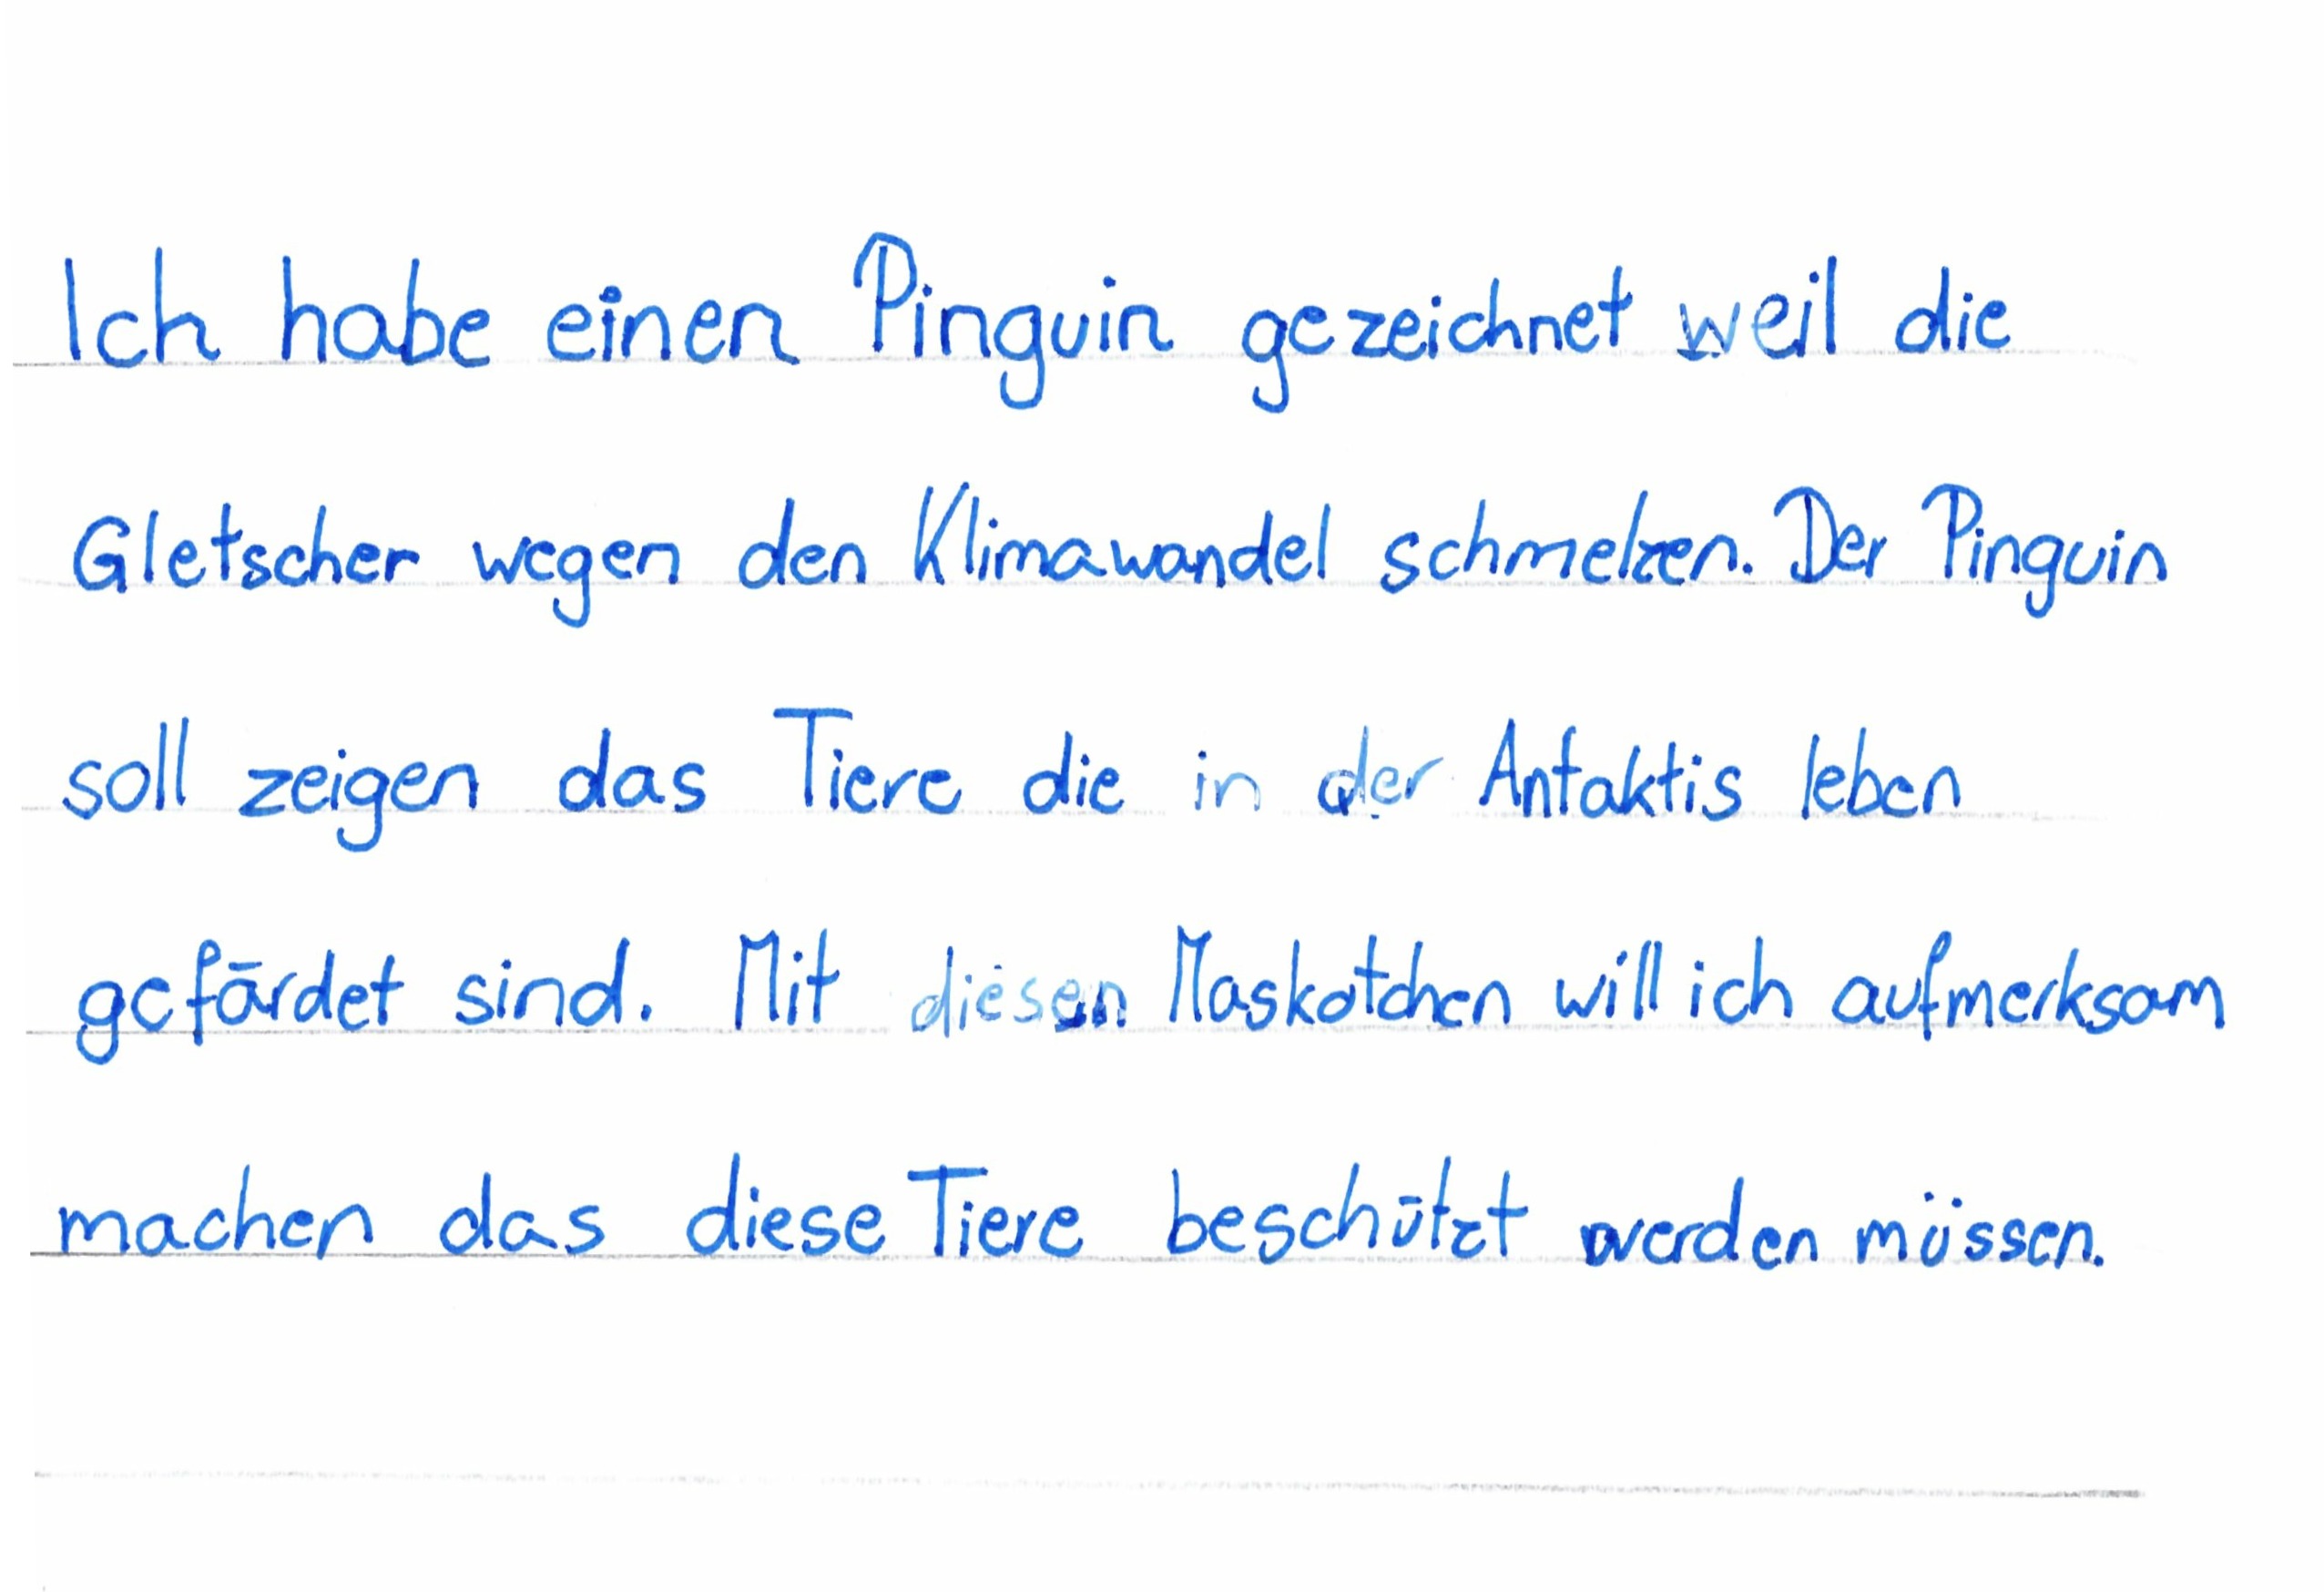 Ich habe einen Pinguin gezeichnet weil die
Gletscher wegen den Klimawandel schmelzen. Der Pinguin
soll zeigen das Tiere die in der Antaktis leben
gefärdet sind. Mit diesen Maskotchen will ich aufmerksam
machen das diese Tiere beschützt werden müssen.